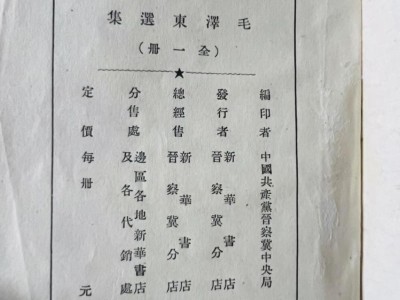 毛澤東選集
（全一冊）
編印者 中國共產黨晉察冀中央局
發行者 新華書店
晉察冀分店
總經售 新華書店
晉察冀分店
分售處 邊區各地新華書店
及各代銷處
定價每冊 元